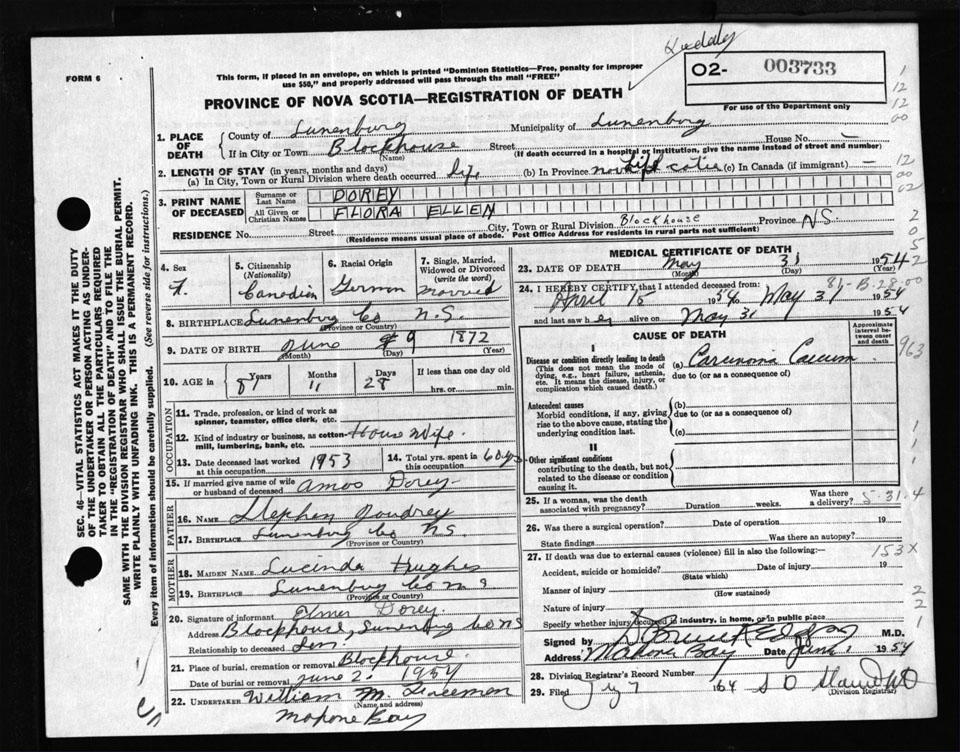 FORM 6
This form, if placed in an envelope, on which is printed "Dominion Statistics—Free, penalty for improper
use $50," and properly addressed will pass through the mail "FREE"
O2- 003733
For use of the Department only
PROVINCE OF NOVA SCOTIA—REGISTRATION OF DEATH
SEC. 46—VITAL STATISTICS ACT MAKES IT THE DUTY
OF THE UNDERTAKER OR PERSON ACTING AS UNDER-
TAKER TO OBTAIN ALL THE PARTICULARS REQUIRED
IN THE "REGISTRATION OF DEATH" AND TO FILE THE
SAME WITH THE DIVISION REGISTRAR WHO SHALL ISSUE THE BURIAL PERMIT.
WRITE PLAINLY WITH UNFADING INK. THIS IS A PERMANENT RECORD.
Every item of information should be carefully supplied. (See reverse side for instructions.)
1. PLACE OF DEATH
County of Lunenburg Municipality of Lunenburg
If in City or Town Blockhouse Street House No. —
(Name) (If death occurred in a hospital or institution, give the name instead of street and number)
2. LENGTH OF STAY (in years, months and days)
(a) In City, Town or Rural Division where death occurred life (b) In Province life (c) In Canada (if immigrant) —
3. PRINT NAME OF DECEASED
Surname or Last Name DOREY
All Given or Christian Names FLORA ELLEN
RESIDENCE No. Street City, Town or Rural Division Blockhouse Province N.S.
(Residence means usual place of abode. Post Office Address for residents in rural parts not sufficient)
4. Sex F.
5. Citizenship (Nationality) Canadian
6. Racial Origin German
7. Single, Married, Widowed or Divorced (write the word) Married
8. BIRTHPLACE Lunenburg Co N.S.
(Province or Country)
9. DATE OF BIRTH June 9 1872
(Month) (Day) (Year)
10. AGE in 81 Years 11 Months 28 Days If less than one day hrs. or min.
OCCUPATION
11. Trade, profession, or kind of work as
spinner, teamster, office clerk, etc.
12. Kind of industry or business, as cotton-
mill, lumbering, bank, etc. House Wife.
13. Date deceased last worked at this occupation 1953
14. Total yrs. spent in this occupation 60 yrs
15. If married give name of wife
or husband of deceased Amos Dorey
FATHER
16. NAME Stephen
17. BIRTHPLACE Lunenburg Co N.S.
(Province or Country)
MOTHER
18. MAIDEN NAME Lucinda Hughes
19. BIRTHPLACE Lunenburg Co N S
(Province or Country)
20. Signature of informant Elmer Dorey.
Address Blockhouse, Lunenburg Co NS
Relationship to deceased Son.
21. Place of burial, cremation or removal Blockhouse.
Date of burial or removal June 2. 1954
22. UNDERTAKER William M.
(Name and address)
Mahone Bay
MEDICAL CERTIFICATE OF DEATH
23. DATE OF DEATH May 31 1954
(Month) (Day) (Year)
24. I HEREBY CERTIFY, that I attended deceased from:
April 15 1954 to May 31 1954
and last saw her alive on May 31 1954
CAUSE OF DEATH
Approximate interval between onset and death
I
Disease or condition directly leading to death
(This does not mean the mode of
dying, e.g., heart failure, asthenia,
etc. It means the disease, injury, or
complication which caused death.)
(a) Carcinoma Caecum
due to (or as a consequence of)
Antecedent causes
Morbid conditions, if any, giving
rise to the above cause, stating the
underlying condition last.
(b)
due to (or as a consequence of)
(c)
II
Other significant conditions
contributing to the death, but not
related to the disease or condition
causing it.
25. If a woman, was the death
associated with pregnancy? Duration weeks. Was there a delivery?
5-31.4
26. Was there a surgical operation? Date of operation 19
State findings Was there an autopsy?
27. If death was due to external causes (violence) fill in also the following:—
153X
Accident, suicide or homicide? Date of injury 19
(State which)
Manner of injury
(How sustained)
Nature of injury
Specify whether injury occurred in industry, in home, or in public place
Signed by M.D.
Address Mahone Bay Date June 1 1954
28. Division Registrar's Record Number
29. Filed 7 1954
(Division Registrar)